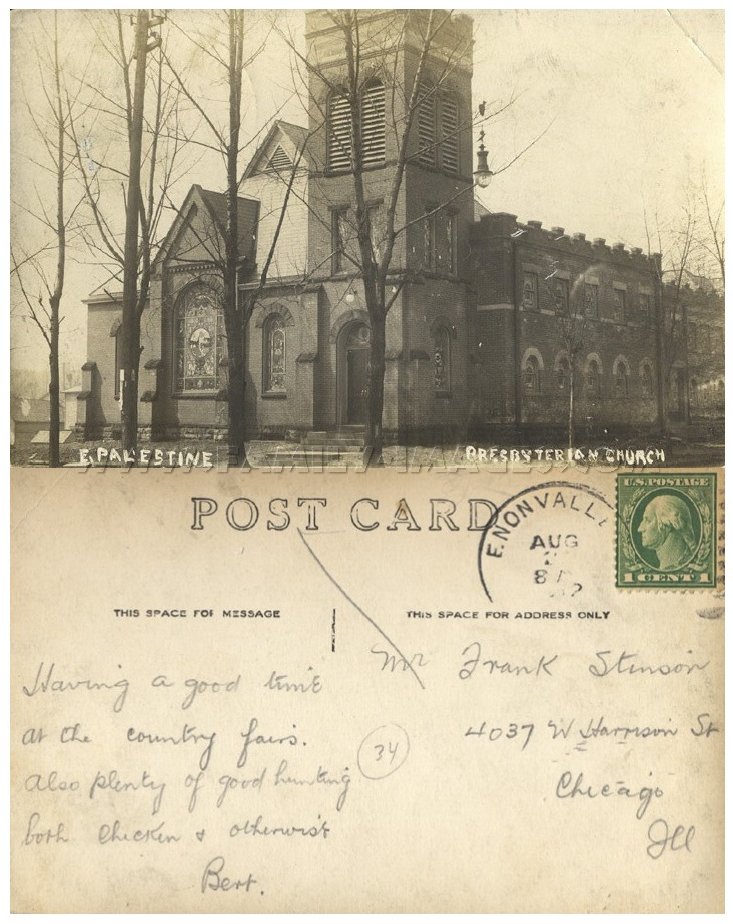 E. PALESTINE
PRESBYTERIAN CHURCH
POST CARD
E.NONVALL
AUG
8
U.S. POSTAGE
1 CENT 1
THIS SPACE FOR MESSAGE
THIS SPACE FOR ADDRESS ONLY
Mr Frank Stinson
4037 W Harrison St
Chicago
Ill
Having a good time
at the country fairs.
Also plenty of good hunting
both chicken & otherwise
Bert.
34